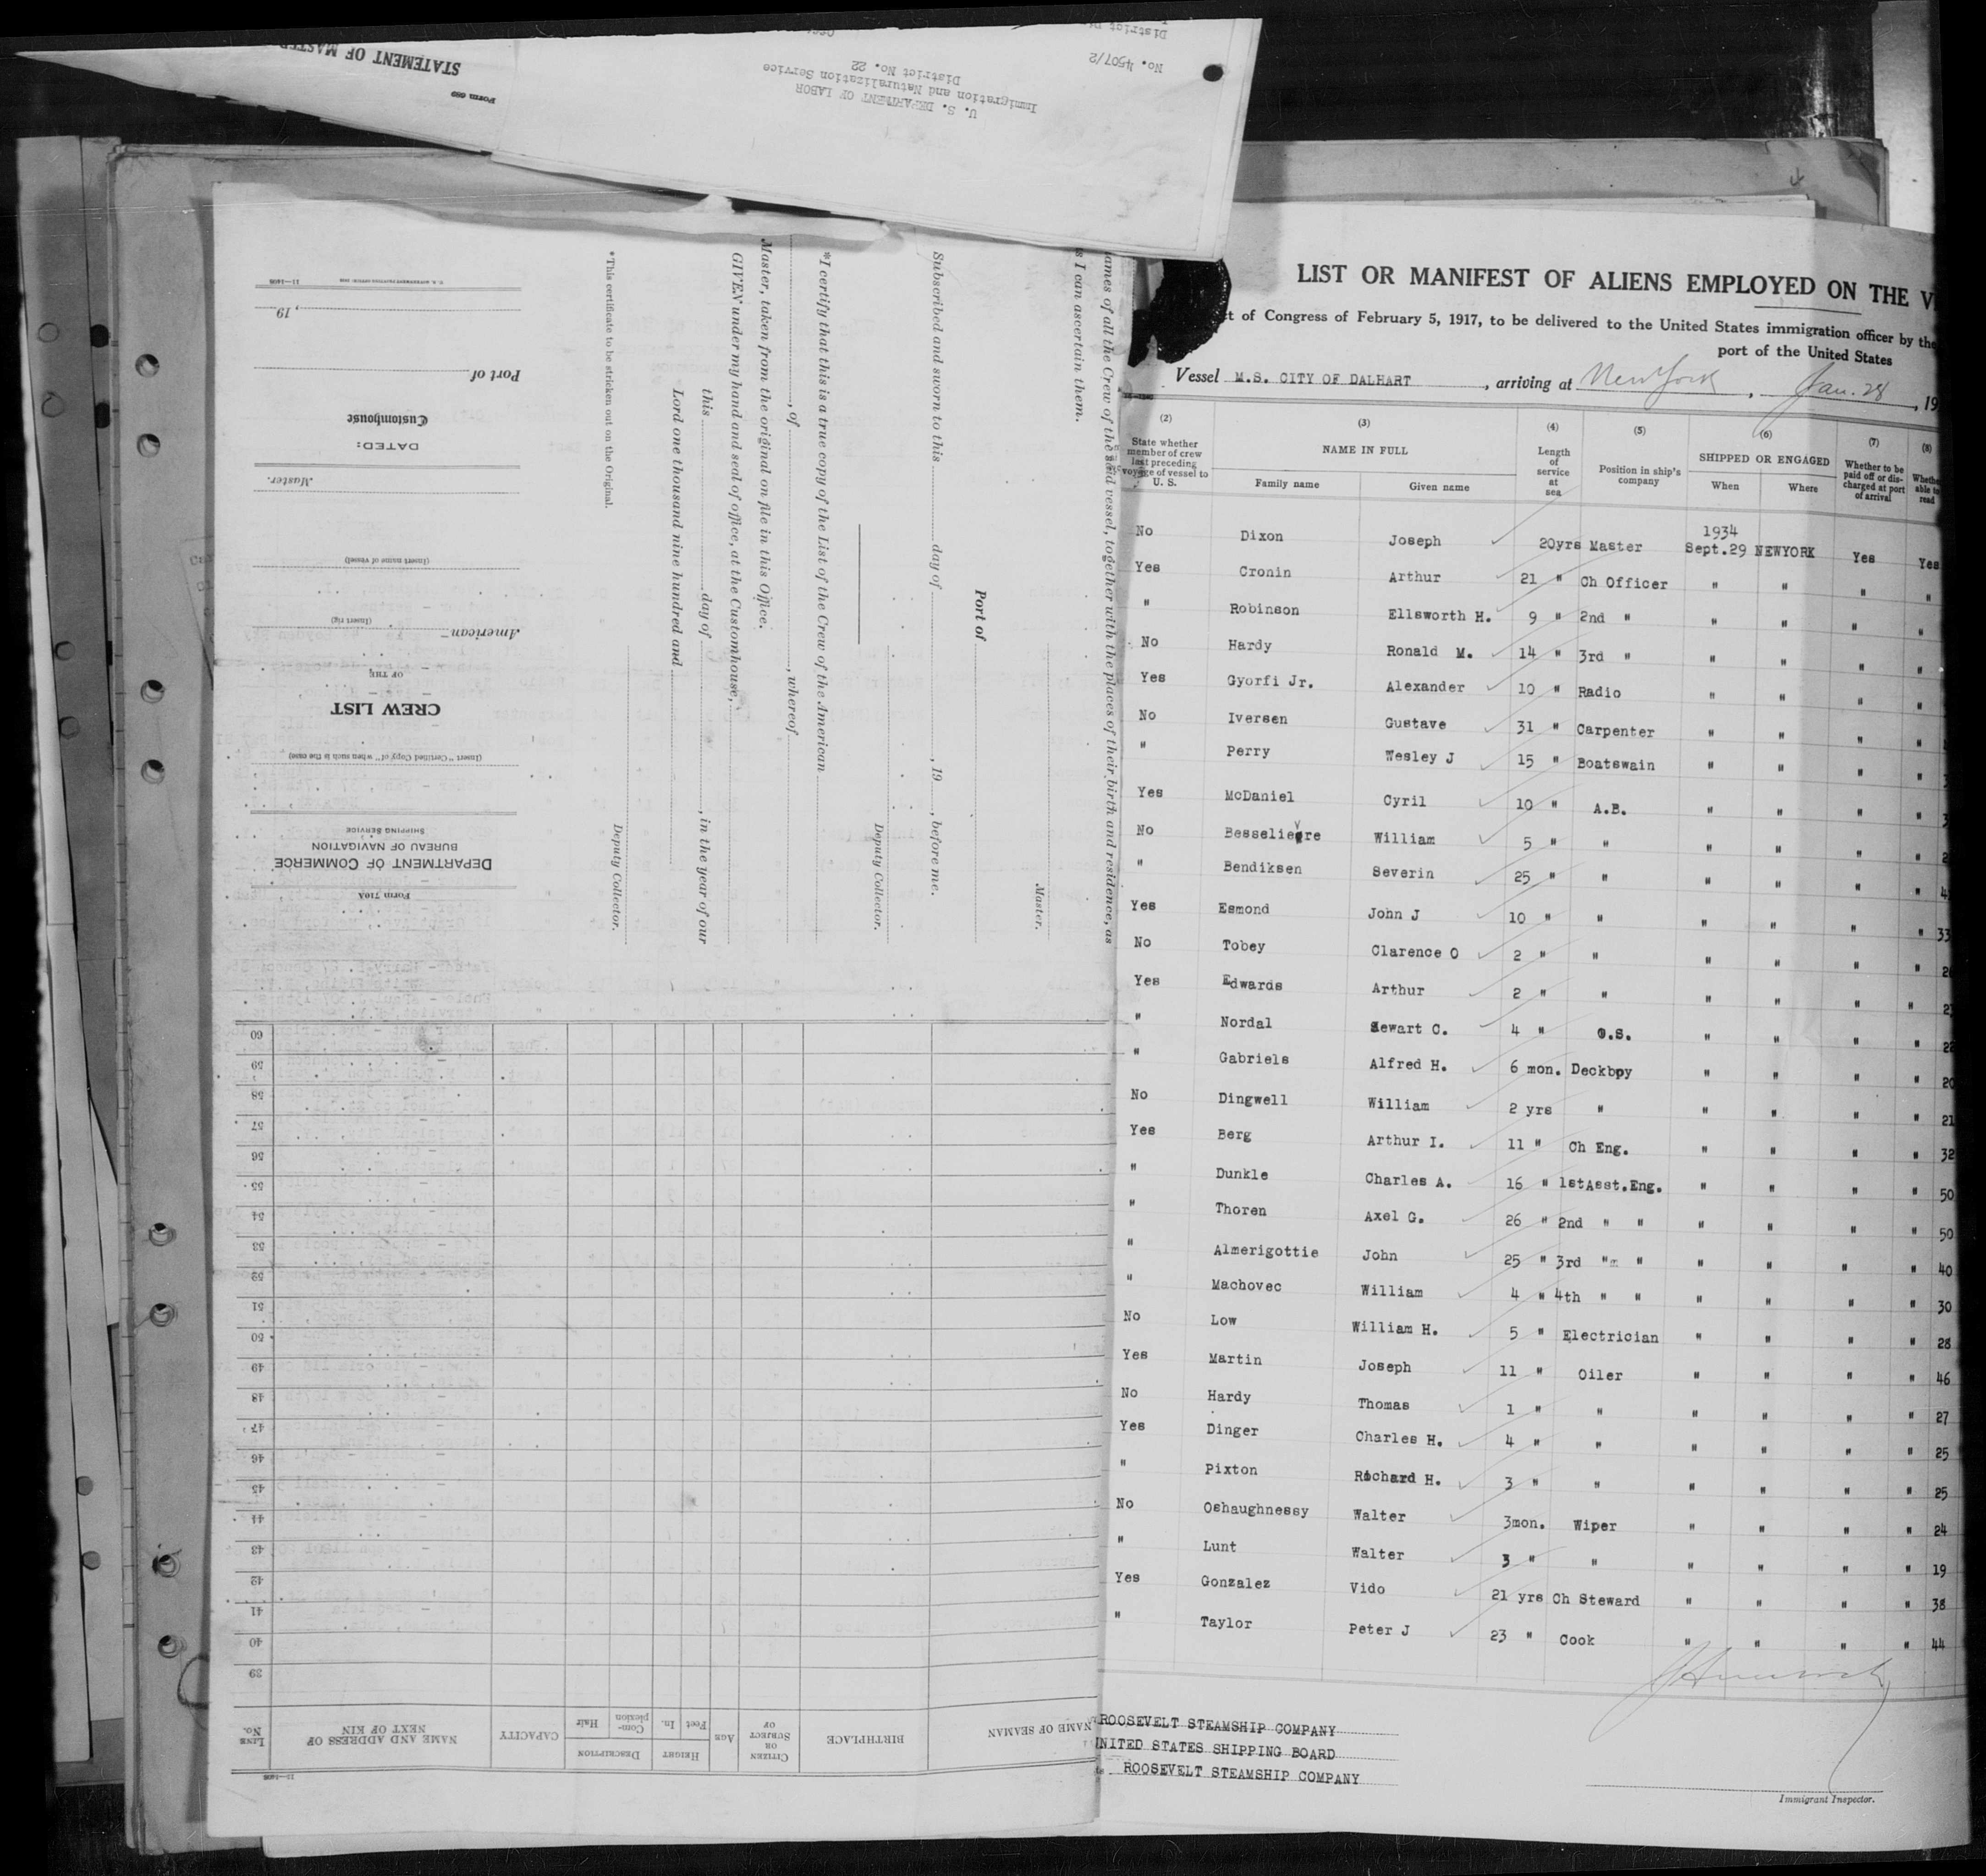 STATEMENT OF MASTER
Form 689
No. 4507/2
U. S. DEPARTMENT OF LABOR
Immigration and Naturalization Service
District No. 22
names of all the Crew of the said vessel, together with the places of their birth and residence, as
I can ascertain them.
Master.
Port of
Subscribed and sworn to this day of , 19 , before me.
Deputy Collector.
*I certify that this is a true copy of the List of the Crew of the American
, of , whereof
Master, taken from the original on file in this Office.
GIVEN under my hand and seal of office, at the Customhouse,
this day of , in the year of our
Lord one thousand nine hundred and
Deputy Collector.
*This certificate to be stricken out on the Original.
Form 710A
DEPARTMENT OF COMMERCE
BUREAU OF NAVIGATION
SHIPPING SERVICE
(Insert "Certified Copy of" when such is the case)
CREW LIST
OF THE
American
(Insert rig)
(Insert name of vessel)
Master.
DATED:
Customhouse
Port of
, 19
LINE No.
NAME AND ADDRESS OF NEXT OF KIN
CAPACITY
DESCRIPTION
Hair
Complexion
HEIGHT
In.
Feet
AGE
CITIZEN OR SUBJECT OF
BIRTHPLACE
NAME OF SEAMAN
39
40
41
42
43
44
45
46
47
48
49
50
51
52
53
54
55
56
57
58
59
60
LIST OR MANIFEST OF ALIENS EMPLOYED ON THE
of Congress of February 5, 1917, to be delivered to the United States immigration officer by the
port of the United States
Vessel M.S. CITY OF DALHART , arriving at New York , Jan. 28 , 19
(2) (3) (4) (5) (6) (7) (8)
State whether member of crew last preceding voyage of vessel to U. S.
NAME IN FULL
Family name Given name
Length of service at sea
Position in ship's company
SHIPPED OR ENGAGED
When Where
Whether to be paid off or discharged at port of arrival
able to read
No Dixon Joseph 20yrs Master 1934 Sept.29 NEWYORK Yes Yes
Yes Cronin Arthur 21 " Ch Officer " " " "
" Robinson Ellsworth H. 9 " 2nd " " " " "
No Hardy Ronald M. 14 " 3rd " " " " "
Yes Gyorfi Jr. Alexander 10 " Radio " " " "
No Iversen Gustave 31 " Carpenter " " " "
" Perry Wesley J 15 " Boatswain " " " "
Yes McDaniel Cyril 10 " A.B. " " " "
No Besselievre William 5 " " " " " "
" Bendiksen Severin 25 " " " " " "
Yes Esmond John J 10 " " " " " " 33
No Tobey Clarence O 2 " " " " " "
Yes Edwards Arthur 2 " " " " " "
" Nordal Sewart C. 4 " O.S. " " " " 22
" Gabriels Alfred H. 6 mon. Deckboy " " " " 20
No Dingwell William 2 yrs " " " " " 21
Yes Berg Arthur I. 11 " Ch Eng. " " " " 32
" Dunkle Charles A. 16 " 1stAsst.Eng. " " " " 50
" Thoren Axel G. 26 " 2nd " " " " " " 50
" Almerigottie John 25 " 3rd " " " " " " 40
" Machovec William 4 " 4th " " " " " " 30
No Low William H. 5 " Electrician " " " " 28
Yes Martin Joseph 11 " Oiler " " " " 46
No Hardy Thomas 1 " " " " " " 27
Yes Dinger Charles H. 4 " " " " " " 25
" Pixton Richard H. 3 " " " " " " 25
No Oshaughnessy Walter 3mon. Wiper " " " " 24
" Lunt Walter 3 " " " " " " 19
Yes Gonzalez Vido 21 yrs Ch Steward " " " " 38
" Taylor Peter J 23 " Cook " " " " 44
ROOSEVELT STEAMSHIP COMPANY
UNITED STATES SHIPPING BOARD
ROOSEVELT STEAMSHIP COMPANY
Immigrant Inspector.